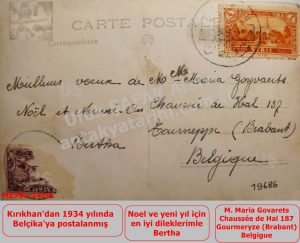 CARTE POSTALE
Correspondance
Meilleurs voeux de Mme Maria Goyvaerts
Noël et Nouvel-An Chaussée de Hal 137
Tourneppe (Brabant)
Bertha
Belgique
19686
Kırıkhan'dan 1934 yılında
Belçika'ya postalanmış
Noel ve yeni yıl için
en iyi dileklerimle
Bertha
M. Maria Govarets
Chaussée de Hal 187
Gourmeryze (Brabant)
Belgigue